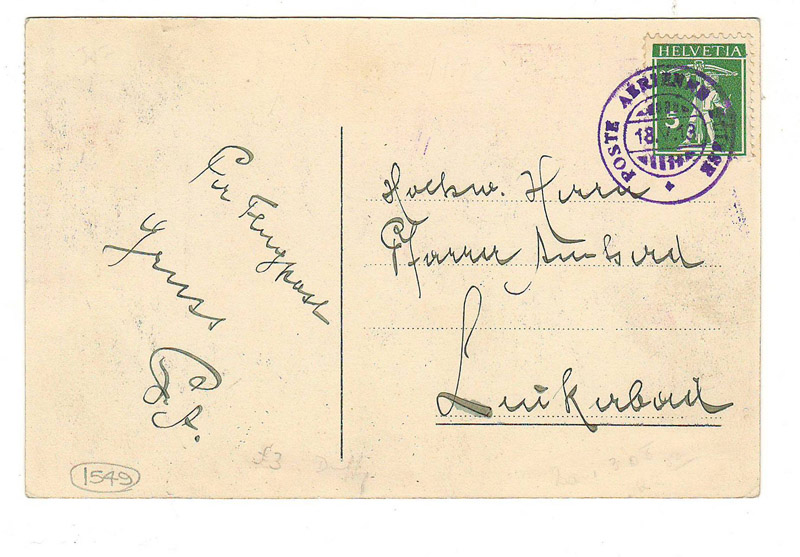 HELVETIA
5
POSTE AÉRIENNE SUISSE
18.V.13
Per Flugpost
Gruss
Hochw. Herrn
Pfarrer
Leukerbad
1549
£3